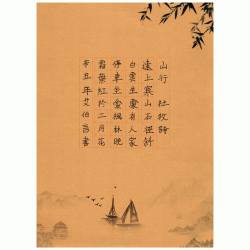 山行 杜牧詩
遠上寒山石徑斜
白雲生處有人家
停車坐愛楓林晚
霜葉紅於二月花
辛丑年艾伯書